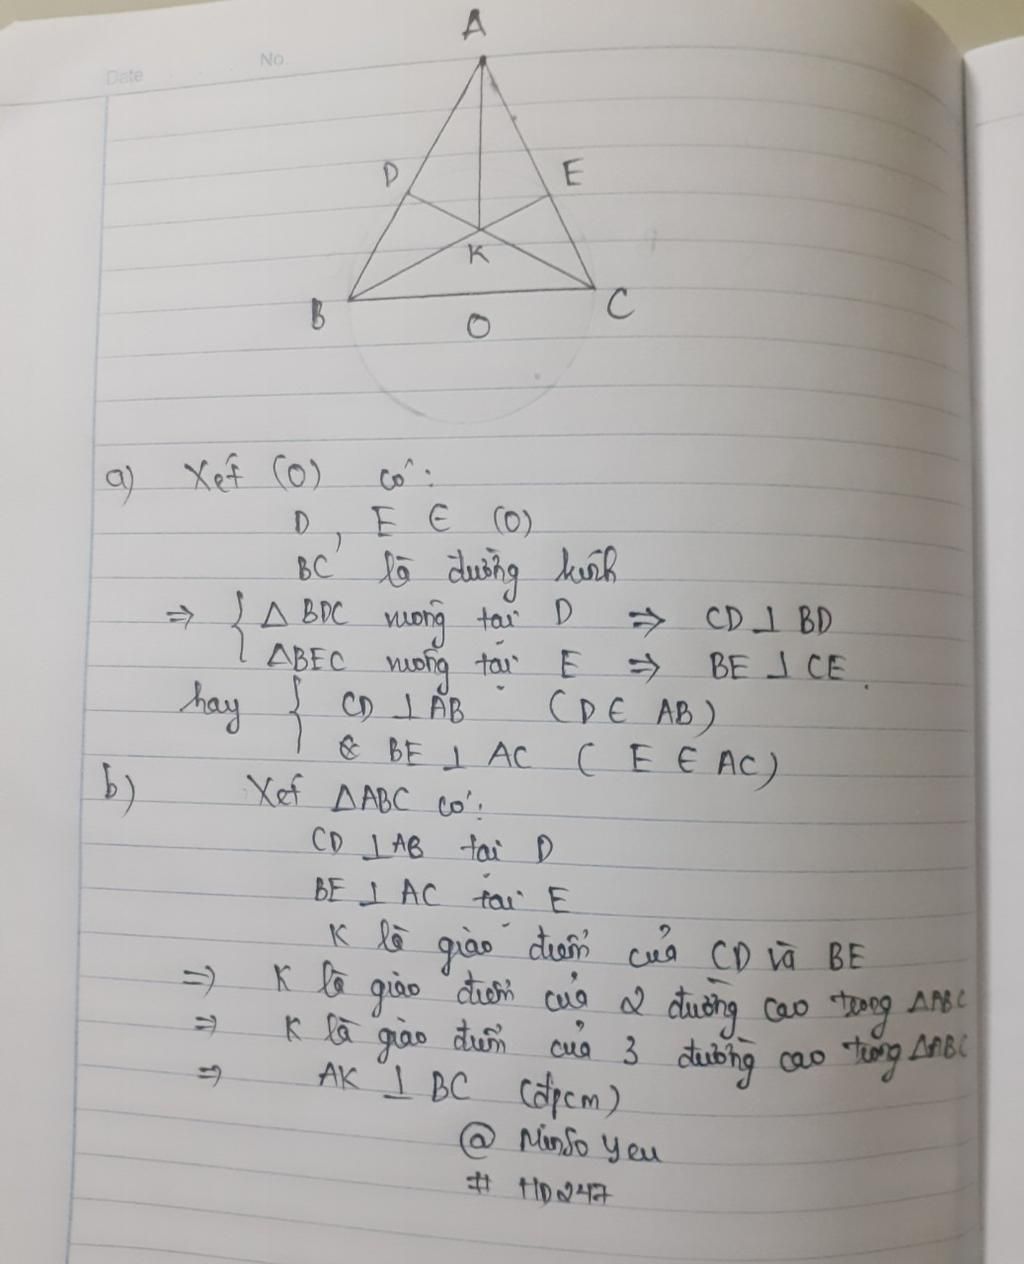 Date No.
A
D E
K
B C
O
a) Xét (O) có:
D, E ∈ (O)
BC là đường kính
=> { Δ BDC vuông tại D => CD ⊥ BD
ΔBEC vuông tại E => BE ⊥ CE.
hay { CD ⊥ AB (D ∈ AB)
& BE ⊥ AC ( E ∈ AC)
b) Xét ΔABC có:
CD ⊥ AB tại D
BE ⊥ AC tại E
K là giao điểm của CD và BE
=> K là giao điểm của 2 đường cao trong ΔABC
=> K là giao điểm của 3 đường cao trong ΔABC
=> AK ⊥ BC (đpcm)
@ MinSo yeu
# HD247